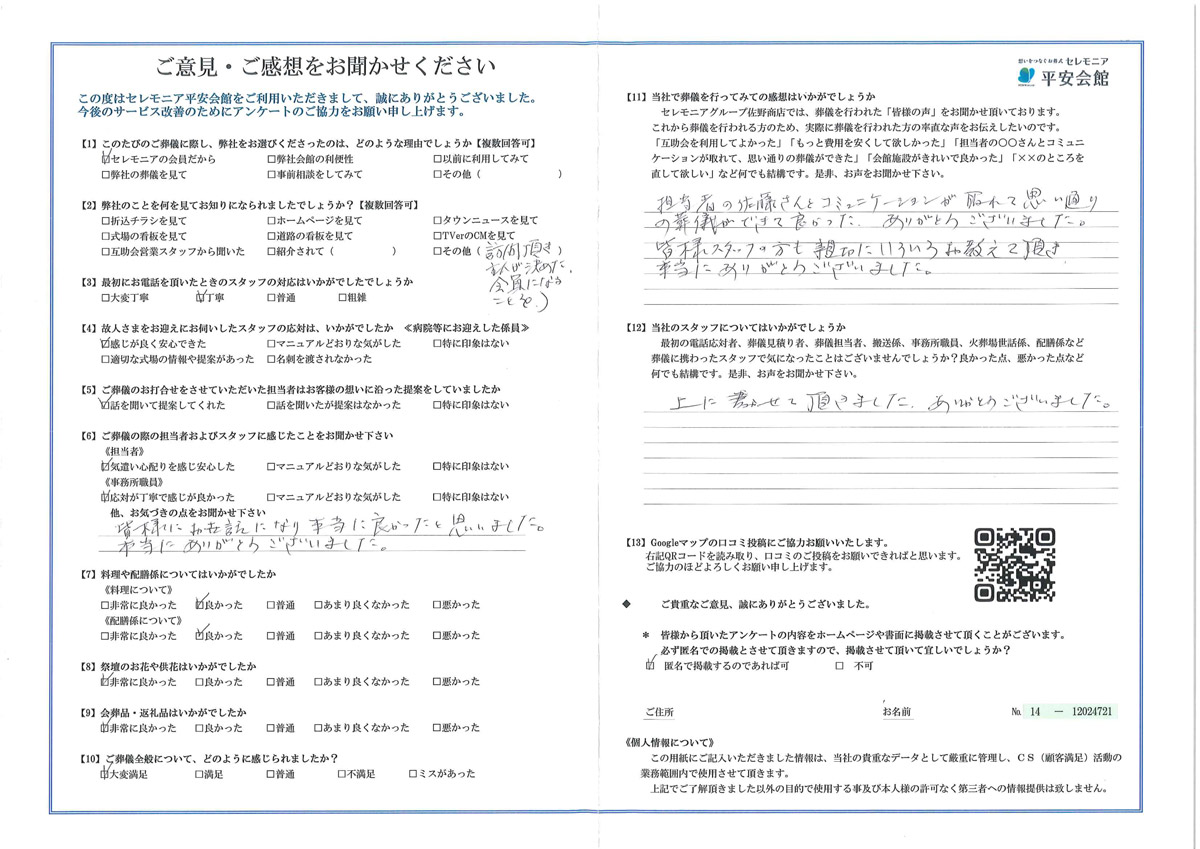 ご意見・ご感想をお聞かせください
この度はセレモニア平安会館をご利用いただきまして、誠にありがとうございました。
今後のサービス改善のためにアンケートのご協力をお願い申し上げます。
【1】このたびのご葬儀に際し、弊社をお選びくださったのは、どのような理由でしょうか【複数回答可】
☑セレモニアの会員だから □弊社会館の利便性 □以前に利用してみて
□弊社の葬儀を見て □事前相談をしてみて □その他（ ）
【2】弊社のことを何を見てお知りになられましたでしょうか？【複数回答可】
□折込チラシを見て □ホームページを見て □タウンニュースを見て
□式場の看板を見て □道路の看板を見て □TVerのCMを見て
□互助会営業スタッフから聞いた □紹介されて（ ） □その他（訪問頂き）
主人が決めた、
会員になる
ことを、）
【3】最初にお電話を頂いたときのスタッフの対応はいかがでしたでしょうか
□大変丁寧 ☑丁寧 □普通 □粗雑
【4】故人さまをお迎えにお伺いしたスタッフの応対は、いかがでしたか ≪病院等にお迎えした係員≫
☑感じが良く安心できた □マニュアルどおりな気がした □特に印象はない
□適切な式場の情報や提案があった □名刺を渡されなかった
【5】ご葬儀のお打合せをさせていただいた担当者はお客様の想いに沿った提案をしていましたか
☑話を聞いて提案してくれた □話を聞いたが提案はなかった □特に印象はない
【6】ご葬儀の際の担当者およびスタッフに感じたことをお聞かせ下さい
《担当者》
☑気遣い心配りを感じ安心した □マニュアルどおりな気がした □特に印象はない
《事務所職員》
☑応対が丁寧で感じが良かった □マニュアルどおりな気がした □特に印象はない
他、お気づきの点をお聞かせ下さい
皆様にお世話になり本当に良かったと思いました。
本当にありがとうございました。
【7】料理や配膳係についてはいかがでしたか
《料理について》
□非常に良かった ☑良かった □普通 □あまり良くなかった □悪かった
《配膳係について》
□非常に良かった ☑良かった □普通 □あまり良くなかった □悪かった
【8】祭壇のお花や供花はいかがでしたか
☑非常に良かった □良かった □普通 □あまり良くなかった □悪かった
【9】会葬品・返礼品はいかがでしたか
☑非常に良かった □良かった □普通 □あまり良くなかった □悪かった
【10】ご葬儀全般について、どのように感じられましたか？
☑大変満足 □満足 □普通 □不満足 □ミスがあった
想いをつなぐお葬式 セレモニア
平安会館
【11】当社で葬儀を行ってみての感想はいかがでしょうか
セレモニアグループ佐野商店では、葬儀を行われた「皆様の声」をお聞かせ頂いております。
これから葬儀を行われる方のため、実際に葬儀を行われた方の率直な声をお伝えしたいのです。
「互助会を利用してよかった」「もっと費用を安くして欲しかった」「担当者の〇〇さんとコミュニ
ケーションが取れて、思い通りの葬儀ができた」「会館施設がきれいで良かった」「××のところを
直して欲しい」など何でも結構です。是非、お声をお聞かせ下さい。
担当者の佐藤さんとコミュニケーションが取れて思い通り
の葬儀ができて良かった、ありがとうございました。
皆様スタッフの方も親切にいろいろお教えて頂き
本当にありがとうございました。
【12】当社のスタッフについてはいかがでしょうか
最初の電話応対者、葬儀見積り者、葬儀担当者、搬送係、事務所職員、火葬場世話係、配膳係など
葬儀に携わったスタッフで気になったことはございませんでしょうか？良かった点、悪かった点など
何でも結構です。是非、お声をお聞かせ下さい。
上に書かせて頂きました、ありがとうございました。
【13】Googleマップの口コミ投稿にご協力お願いいたします。
右記QRコードを読み取り、口コミのご投稿をお願いできればと思います。
ご協力のほどよろしくお願い申し上げます。
◆ ご貴重なご意見、誠にありがとうございました。
＊ 皆様から頂いたアンケートの内容をホームページや書面に掲載させて頂くことがございます。
必ず匿名での掲載とさせて頂きますので、掲載させて頂いて宜しいでしょうか？
☑ 匿名で掲載するのであれば可 □ 不可
ご住所 お名前 № 14 － 12024721
《個人情報について》
この用紙にご記入いただきました情報は、当社の貴重なデータとして厳重に管理し、ＣＳ（顧客満足）活動の
業務範囲内で使用させて頂きます。
上記でご了解頂きました以外の目的で使用する事及び本人様の許可なく第三者への情報提供は致しません。